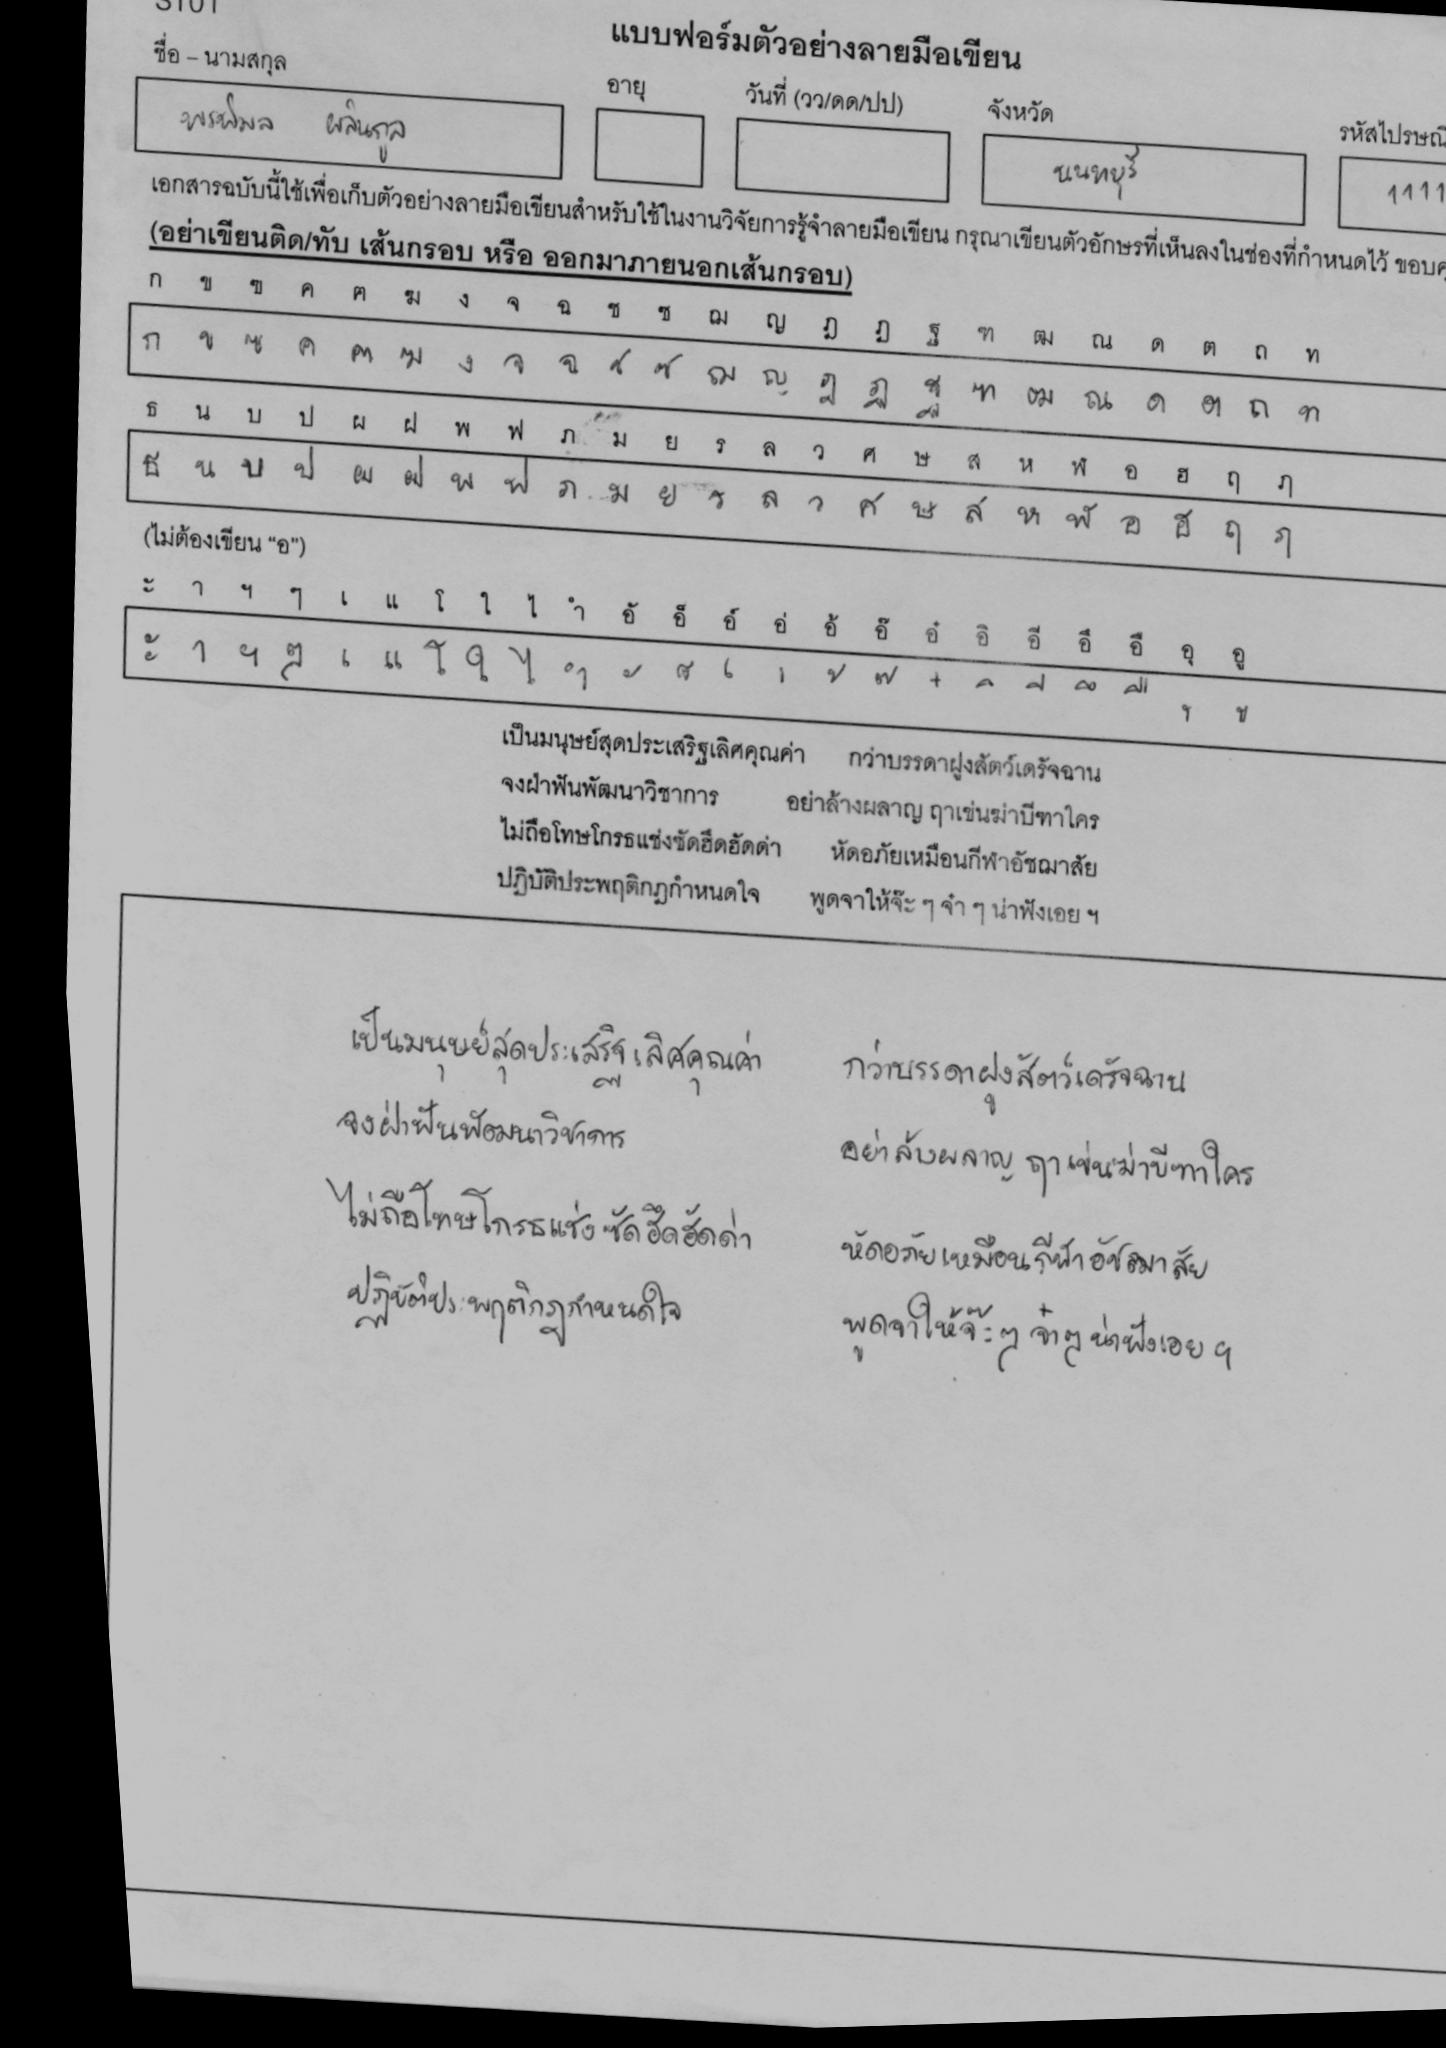 S101
แบบฟอร์มตัวอย่างลายมือเขียน
ชื่อ – นามสกุล อายุ วันที่ (วว/ดด/ปป) จังหวัด รหัสไปรษณี
พรพิมล ผลินกูล นนทบุรี 1111
เอกสารฉบับนี้ใช้เพื่อเก็บตัวอย่างลายมือเขียนสำหรับใช้ในงานวิจัยการรู้จำลายมือเขียน กรุณาเขียนตัวอักษรที่เห็นลงในช่องที่กำหนดไว้ ขอบคุ
(อย่าเขียนติด/ทับ เส้นกรอบ หรือ ออกมาภายนอกเส้นกรอบ)
ก ข ฃ ค ฅ ฆ ง จ ฉ ช ซ ฌ ญ ฎ ฏ ฐ ฑ ฒ ณ ด ต ถ ท
ก ข ฃ ค ฅ ฆ ง จ ฉ ช ซ ฌ ญ ฎ ฏ ฐ ฑ ฒ ณ ด ต ถ ท
ธ น บ ป ผ ฝ พ ฟ ภ ม ย ร ล ว ศ ษ ส ห ฬ อ ฮ ฤ ฦ
ธ น บ ป ผ ฝ พ ฟ ภ ม ย ร ล ว ศ ษ ส ห ฬ อ ฮ ฤ ฦ
(ไม่ต้องเขียน “อ”)
ะ า ฯ ๆ เ แ โ ใ ไ ำ อั อ็ อ์ อ่ อ้ อ๊ อ๋ อิ อี อึ อื อุ อู
ะ า ฯ ๆ เ แ โ ใ ไ ำ ั ็ ์ ่ ้ ๊ ๋ ิ ี ึ ื ุ ู
เป็นมนุษย์สุดประเสริฐเลิศคุณค่า กว่าบรรดาฝูงสัตว์เดรัจฉาน
จงฝ่าฟันพัฒนาวิชาการ อย่าล้างผลาญ ฤาเข่นฆ่าบีฑาใคร
ไม่ถือโทษโกรธแช่งซัดฮึดฮัดด่า หัดอภัยเหมือนกีฬาอัชฌาสัย
ปฏิบัติประพฤติกฎกำหนดใจ พูดจาให้จ๊ะ ๆ จ๋า ๆ น่าฟังเอย ฯ
เป็นมนุษย์สุดประเสริฐเลิศคุณค่า กว่าบรรดาฝูงสัตว์เดรัจฉาน
จงฝ่าฟันพัฒนาวิชาการ อย่าล้างผลาญ ฤาเข่นฆ่าบีฑาใคร
ไม่ถือโทษโกรธแช่งซัดฮึดฮัดด่า หัดอภัยเหมือนกีฬาอัชฌาสัย
ปฏิบัติประพฤติกฎกำหนดใจ พูดจาให้จ๊ะๆ จ๋าๆ น่าฟังเอย ฯ